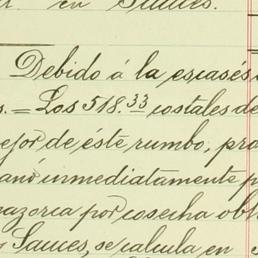 en Sauces.
Debido á la escasés
s. = Los 518.33 costales de
ejor de éste rumbo, pro
anó inmediatamente p
azorca por cosecha obt
Sauces, se calcula en